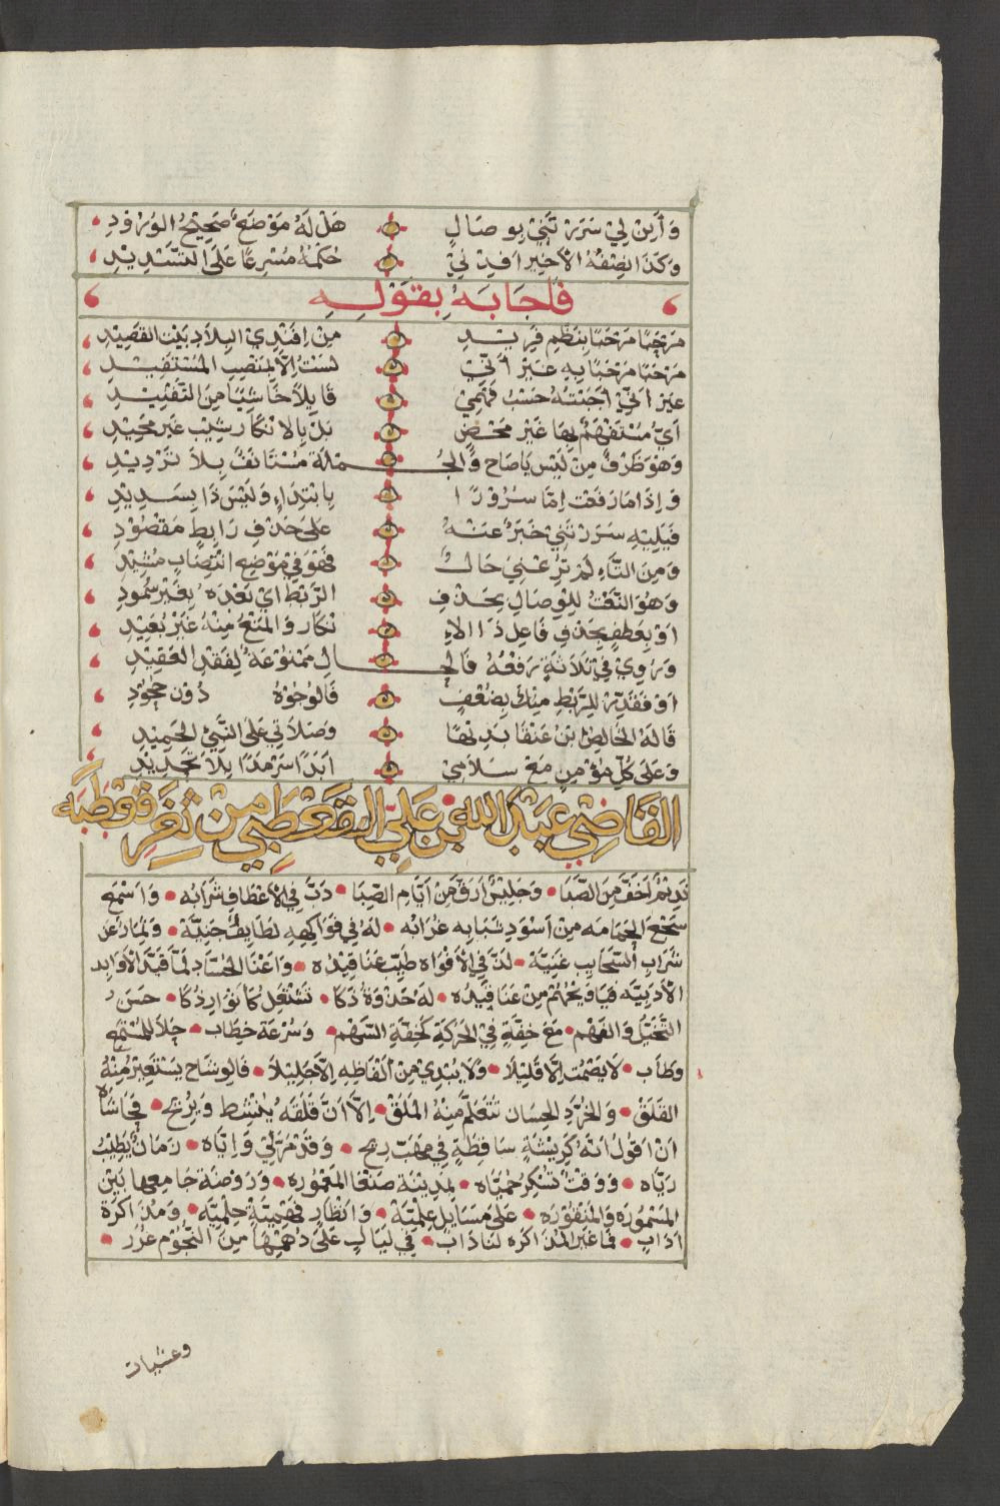 وَأَبِنْ لِيْ سَرَرْ تَنِيْ بِوصَالٍ هَلْ لَهُ مَوْضَعٌ صَحِيْحُ الوُرُوْدِ
وَكَذَا نِصْفُهُ الأَخِيْرُ أَفِدْ نِيْ حُكْمُهُ مُسْرِعًا عَلَى التَّسْدِيْدِ
فَاجَابَهُ بِقَوْلِهِ
مَرْحَبًا مَرْحَبًا بِنَظْمِ فَرِيْدِ مِنْ افَنْدِيْ البِلَادِ بَيْت القَصِيْدِ
مَرْحَبًا مَرْحَبًا بِهِ غَيْرَ أَنِّيْ لَسْتُ إِلَّا بِمَنْصِبِ المُسْتَفِيْدِ
غَيْرَ أَنِّيْ أَجَبْتُهُ حَسْبَ فَهْمِيْ قَابِلًا خَاشِيًا مِنَ التَّفْنِيْدِ
أَيُّ مُسْتَفْهَمٌ بِهَا غَيْرَ مَحْضٍ بَلْ بِالانْكَارِ شِيْبَ غَيْرَ مَحِيْدِ
وَهْوَ ظَرْفٌ مِنْ لَيْسَ يَا صَاح وَالجُمْلَة مُسْتَانَفٌ بِلَا تَرْدِيْدِ
وَإِذَا مَا رَفَعْت إِمَّا سُرُوْرًا بِابْتِدَاءٍ وَلَيْسَ ذَا بِسَدِيْدِ
فَيَلِيْهِ سَرَرْتَنِيْ خَبَرٌ عَنْهُ عَلَى حَذْفِ رَابِطٍ مَقْصُوْدِ
وَمِنَ التَّاءِ لَمْ تَرُعْنِيَ حَالٌ فَهْوَ فِيْ مَوْضِعِ انْتِصَابٍ مُشِيْدِ
وَهُوَ النَّعْتُ لِلْوِصَالِ بِحَذْفِ الرَّبْطِ أَيْ بَعْدَهُ بِغَيْرِ سُمُودِ
اوْ بِعَطْفٍ بِحَذْفِ فَاعِل ذَا الاِنْكَار وَالمَنْعُ مِنْهُ غَيْرُ بَعِيْدِ
وَرُوِيْ فِيْ ثَلَاثَةٍ رَفْعُهُ فَالحَالِ مَمْنُوْعَةٌ لِفَقْدِ العَقِيْدِ
اوْ فَقَدِّرْ لِلرَّبْطِ مِنْكَ بِضُعْفٍ فَالوُجُوْهُ دُوْن جُحُوْدِ
قَالَهُ الخَالِصُ بْنُ عَنْقَا بَدِيْهًا وَصَلَاتِي عَلَى النَّبِيْ الحَمِيْدِ
وَعَلَى كُلِّ مُؤْمِنٍ مَعْ سَلَامِيْ أَبَدًا سَرْمَدًا بِلَا تَحْدِيْدِ
القَاضِيْ عَبْدُ اللهِ بْنُ عَلِيّ القَعْطَبِيْ مِنْ ثَغْرِ قَعْطَبَه
نَدِيْمٌ أَخَفُّ مِنَ الصَّبَا وَجَلِيْسٌ أَرَقُّ مِنْ أَيَّامِ الصِّبَا دَبَّ فِي الأَعْطَافِ شَرَابُه وَاسْمَعَ
سَجْعَ الحَمَامَه مِنْ أَسْوَدِ شَبَابِه غُرَابُه لَهُ فِي فَوَاكِهِهِ لَطَايِفٌ جَنِيَّة وَثِمَار عَن
شَرَابِ السَّحَايِبِ غَنِيَّه لَذَّ فِي الأَفْوَاه طِيْب عَنَاقِيْدُه وَاعْنَا الحُسَّاد لَمَّا قَيَّدَ الأَوَابِد
الأَدَبِيَّه فَيَا وَيْحَهُمْ مِنْ عَنَا قَيْدُه لَهُ حَذْوَةُ ذَكَا تَشْتَعِل كَأَنْوَار ذُكَا حَسَنُ
التَّخَيُّلِ وَالفَهْم مَعَ خِفَّةٍ فِيْ الحَرَكَةِ كَخِفَّةِ السَّهْم وَسُرْعَة خِطَاب حَلَا لِلْمُسْتَمِعِ
وَطَاب لَا يَصْمُت إِلَّا قَلِيْلًا وَلَا يُبْدِيْ مِنْ أَلْفَاظِهِ إِلَّا جَلِيْلًا فَالوِشَاح يَسْتَعِيْرُ مِنْهُ
القَلَقْ وَالخُرَّدِ الحِسَان تَتَعَلَّم مِنْهُ المَلَقْ إِلَّا أَنَّ قَلَقَهُ يُنَشِّط وَيُرِيْح فَحَاشَاهُ
أَنْ أَقُولَ أَنَّهُ كَرِيْشَةٍ سَاقِطَةٍ فِي مَهَبِّ رِيْح وَقَدْ مَرَّ لِيْ وَإِيَّاه زَمَانٌ يَطِيْبُ
رَيَّاه وَوَقْتٌ تُسْكِرُ حُمَيَّاه بِمَدِيْنَة صَنْعَا المَعْمُوره وَرَوْضَة جَامِعهَا بَيْن
المَسْمُورَه وَالمَنْقُورَه عَلَى مَسَايِل عِلْمِيَّة وَانْظَارٍ فَهْمِيَّة حِلْمِيَّه وَمُذَاكَرَة
أَدَابٍ فَمَا غَيْر المُذَاكَرَه لَنَا دَاب فِي لَيَالٍ عَلَى دُهْمَتِهَا مِنَ النُّجُوْم غُرَر
وعشيات